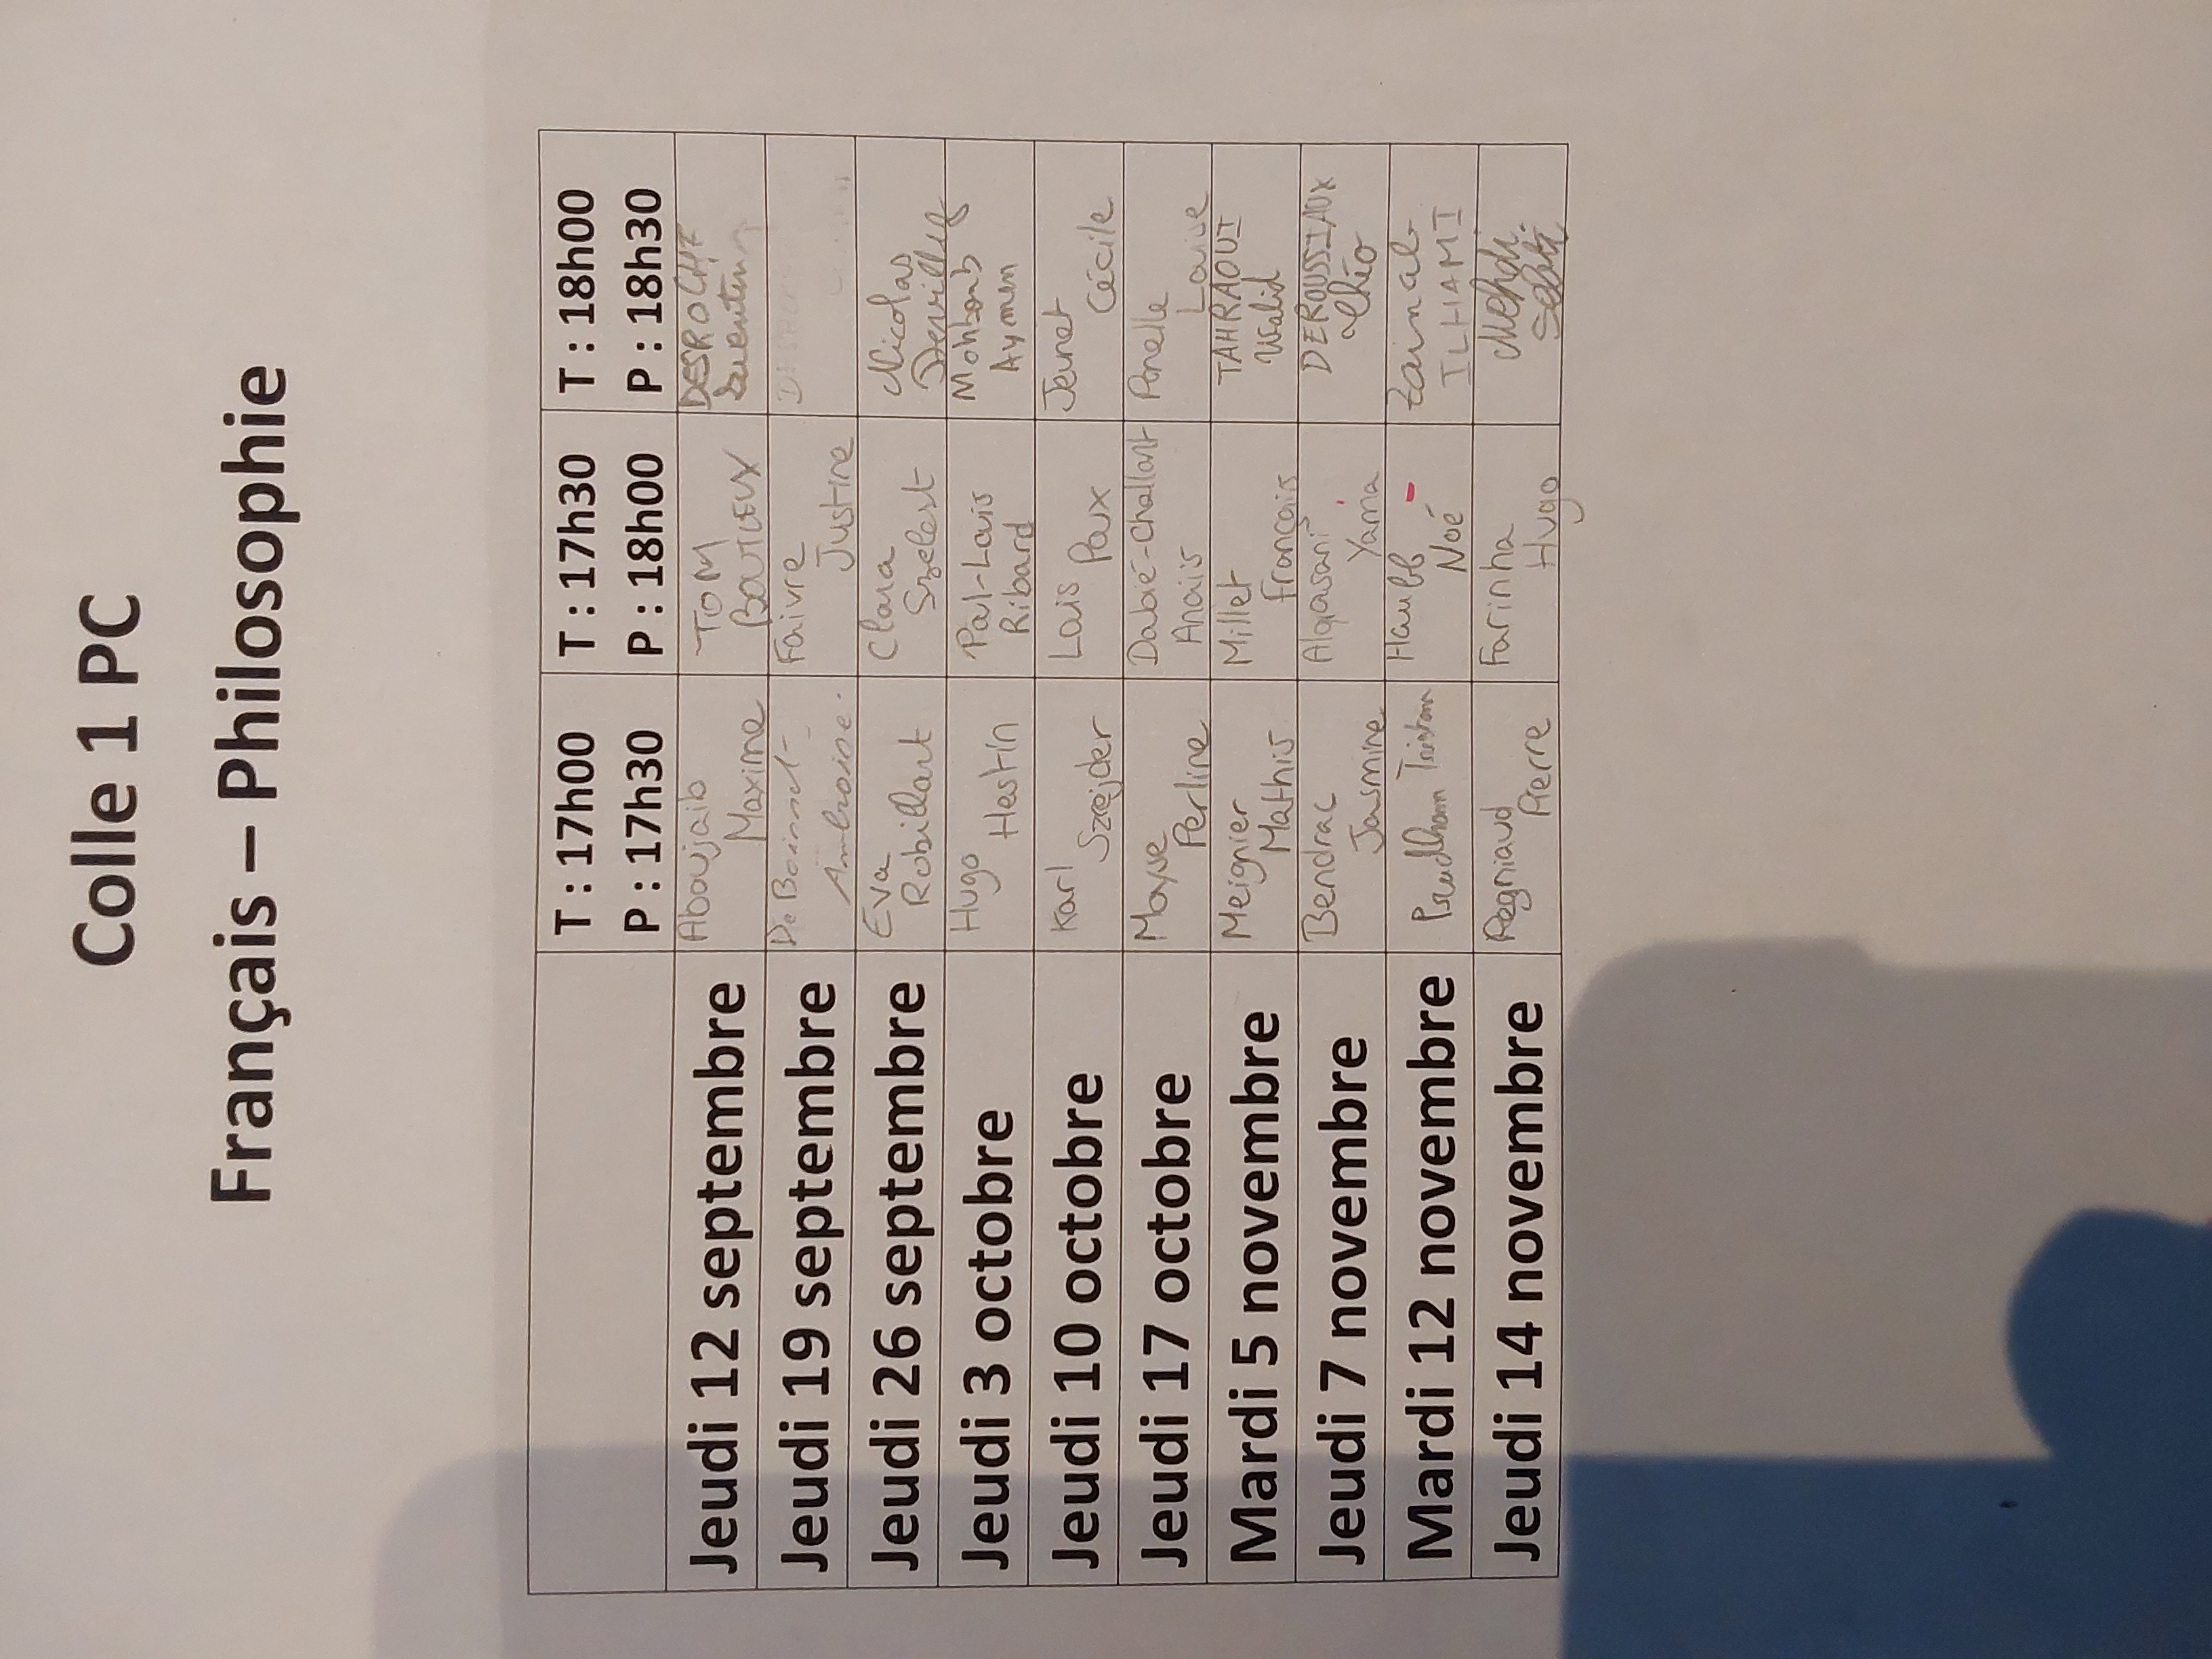 Colle 1 PC
Français – Philosophie
T : 17h00 T : 17h30 T : 18h00
P : 17h30 P : 18h00 P : 18h30
Jeudi 12 septembre Aboujaib TOM DESROCHE
Maxime BOUTLEUX
Jeudi 19 septembre De Faivre
Ambroise. Justine
Jeudi 26 septembre Eva Clara Nicolas
Robillart Szelest
Jeudi 3 octobre Hugo Pal-Louis
Hestin Ribard Aymen
Jeudi 10 octobre Karl Louis Jeunet
Szrejder Poux Cécile
Jeudi 17 octobre Mayse Dabié-Challant Ponelle
Perline Anaïs Louise
Mardi 5 novembre Meignier Millet TAHRAOUI
Mathis François Walid
Jeudi 7 novembre Bendrac DEROUSSIAUX
Jasmine Yama Théo
Mardi 12 novembre Prudhom Tristan Haulb Zainab
Noé ILHAMI
Jeudi 14 novembre Regniaud Farinha Mehdi
Pierre Hugo